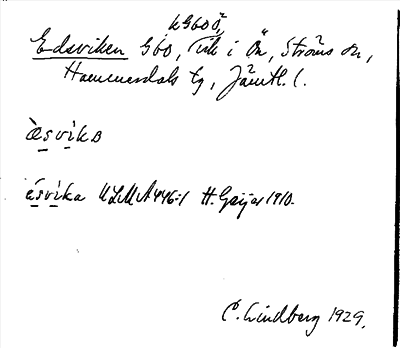 kG60Ö,
Edsviken G60, vik i Ön, Ströms sn,
Hammerdals tg, Jämtl. l.
èsvikɒ
ésvika ULMA 446:1 H. Geijer 1910.
C. Lindberg 1929.